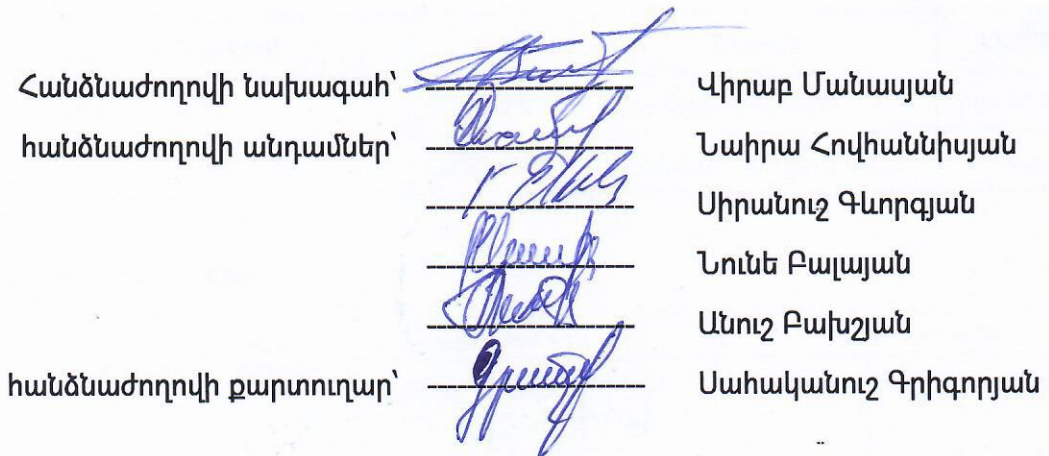 Հանձնաժողովի նախագահ՝ Վիրաբ Մանասյան
հանձնաժողովի անդամներ՝ Նաիրա Հովհաննիսյան
Սիրանուշ Գևորգյան
Նունե Բալայան
Անուշ Բախշյան
հանձնաժողովի քարտուղար՝ Սահականուշ Գրիգորյան